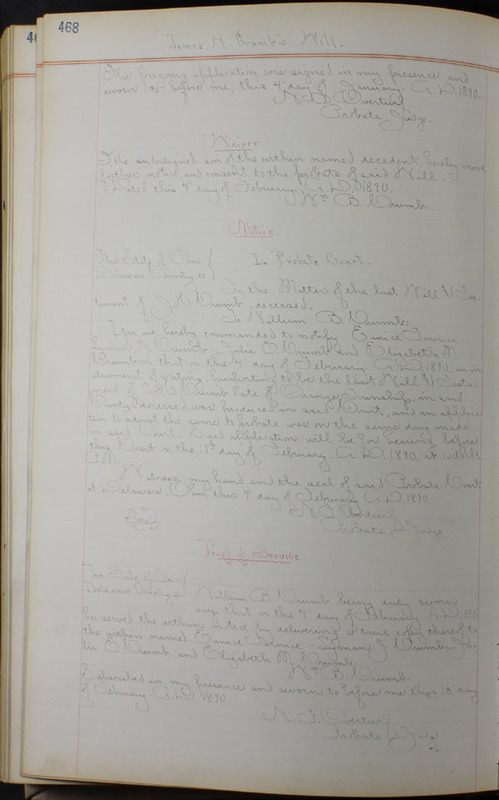 468
James H. Crumb's Will.
The foregoing application was signed in my presence and
sworn to before me, this 4" day of January. A.D. 1890.
Probate Judge.
Waiver
I the undersigned son of the within named decedent, hereby waive
further notice and consent to the probate of said Will.
Dated this 4" day of February, A.D. 1890.
Wm B. Crumb.
Notice.
The State of Ohio
Delaware County ss
In Probate Court.
In the Matter of the last Will & Tes-
tament of J.H. Crumb, deceased.
To William B. Crumb:
You are hereby commanded to notify Eunice
Crumb and Elizabeth M.
Crumb that on the 4" day of February A.D. 1890, an in-
strument of writing, purporting to be the last Will & Testa-
ment of Crumb late of Orange Township, in said
County, deceased, was produced in said Court, and an applica-
tion to admit the same to probate, was on the same day made
in said Court. Said application will be for hearing before
this Court on the day of February, A.D. 1890, at
P.M.
Witness, my hand and the seal of said Probate Court
at Delaware, Ohio, this 4" day of February A.D. 1890.
Seal
Probate Judge
Proof of Service
The State of Ohio
Delaware County ss
William B. Crumb being duly sworn
says that on the 4" day of February A.D. 1890
he served the within notice by delivering a true copy thereof to
the within named Eunice
Crumb and Elizabeth M. Crumb.
Wm B. Crumb.
Subscribed in my presence and sworn to before me this day
of February. A.D. 1890.
Probate Judge